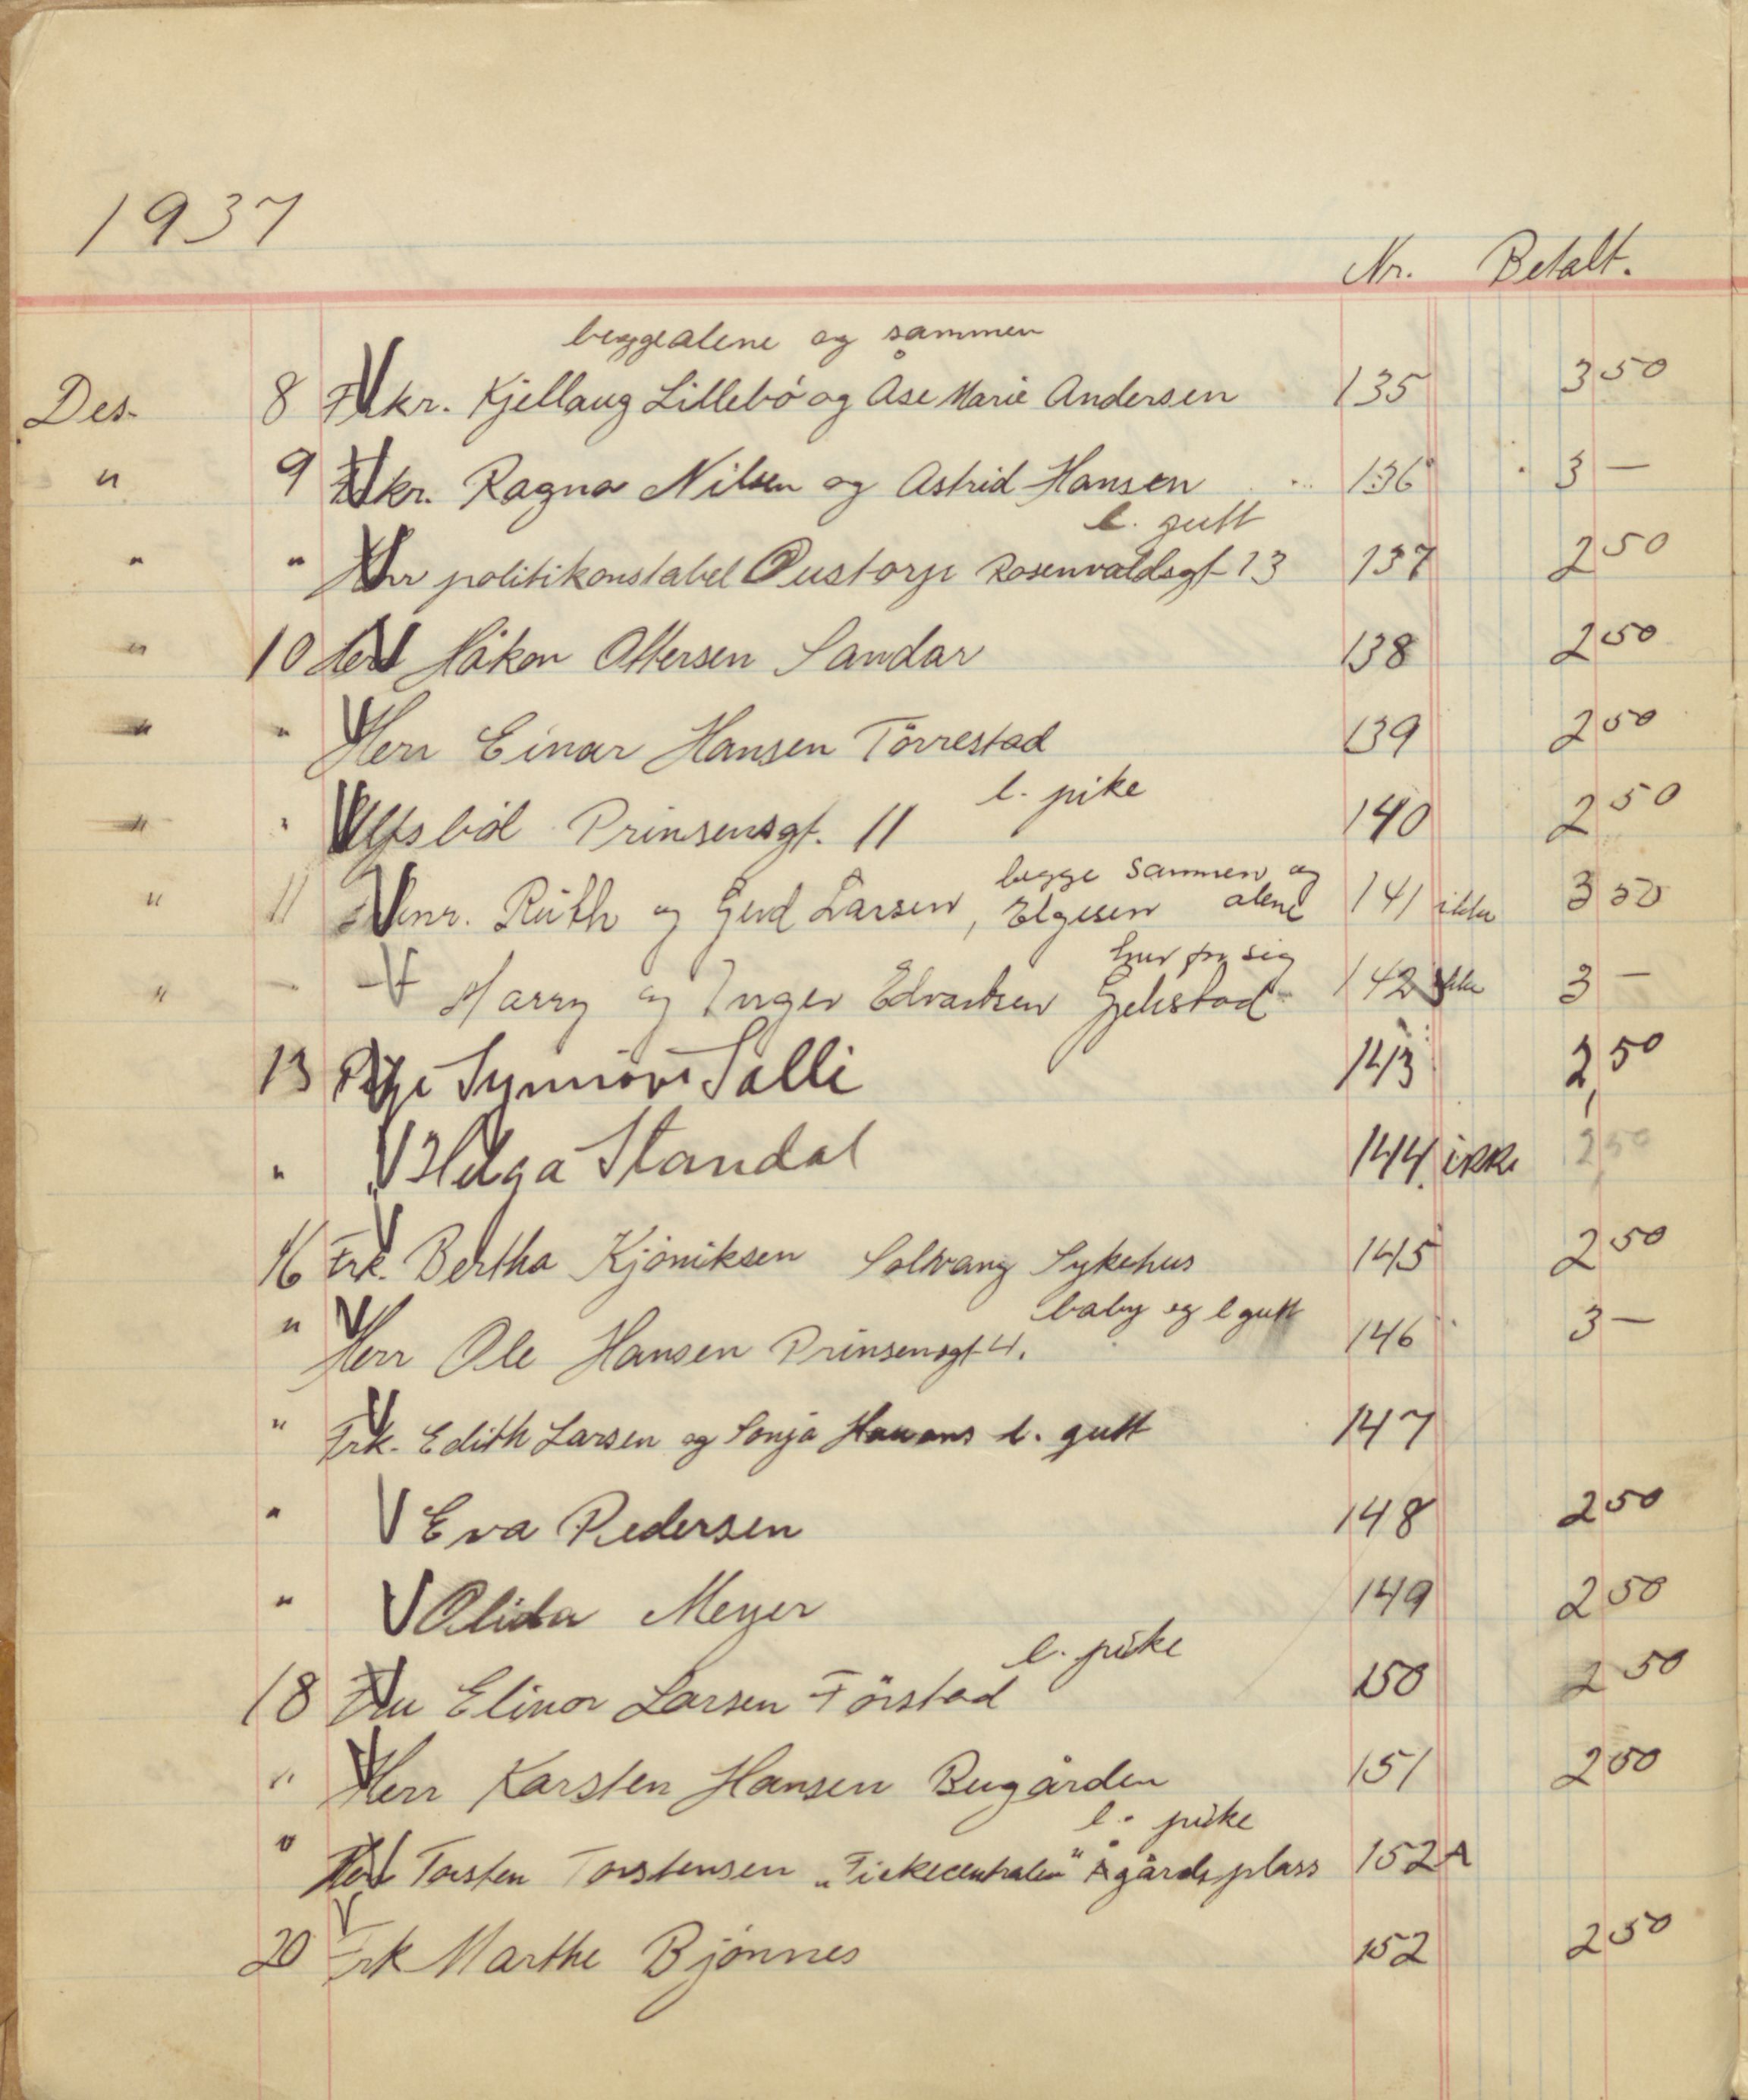 1937
Nr. Betalt.
begge alene og sammen
Des. 8 Frkr. Kjellaug Lillebö og Åse Marie Andersen 135 3 50
" 9 Frkr. Ragna Nilsen og Astrid Hansen 136 3 —
l. gutt
" " Herr politikonstabel Oustorp Rosenvoldsgt 13 137 2 50
" 10 Herr Håkon Ottersen Sandar 138 2 50
" " Herr Einar Hansen Törrestad 139 2 50
l. pike
" " Prinsensgt. 11 140 2 50
begge sammen og
" 11 Rüth og Gerd Larsen, Elgesen alene 141 ikke 3 50
hver for sig
" — Harry og Inger Edvardsen Gjekstad 142 ikke 3 —
13 Synnöve Solli 143 2 50
" Helga Standal 144. ikke 2 50
16 Frk. Bertha Kjöniksen Solvang Sykehus 145 2 50
baby og l gutt
" Herr Ole Hansen Prinsensgt 4. 146 3 —
" Frk. Edith Larsen og Sonja l. gutt 147
" Eva Pedersen 148 2 50
" Olida Meyer 149 2 50
l. pike
18 Fru Elinor Larsen Förstad 150 2 50
" Herr Karsten Hansen Bugården 151 2 50
l. pike
" Herr Torsten Torstensen „Fiskecentralen" Ågårds plass 152 A
20 Frk Marthe Bjönnes 152 2 50